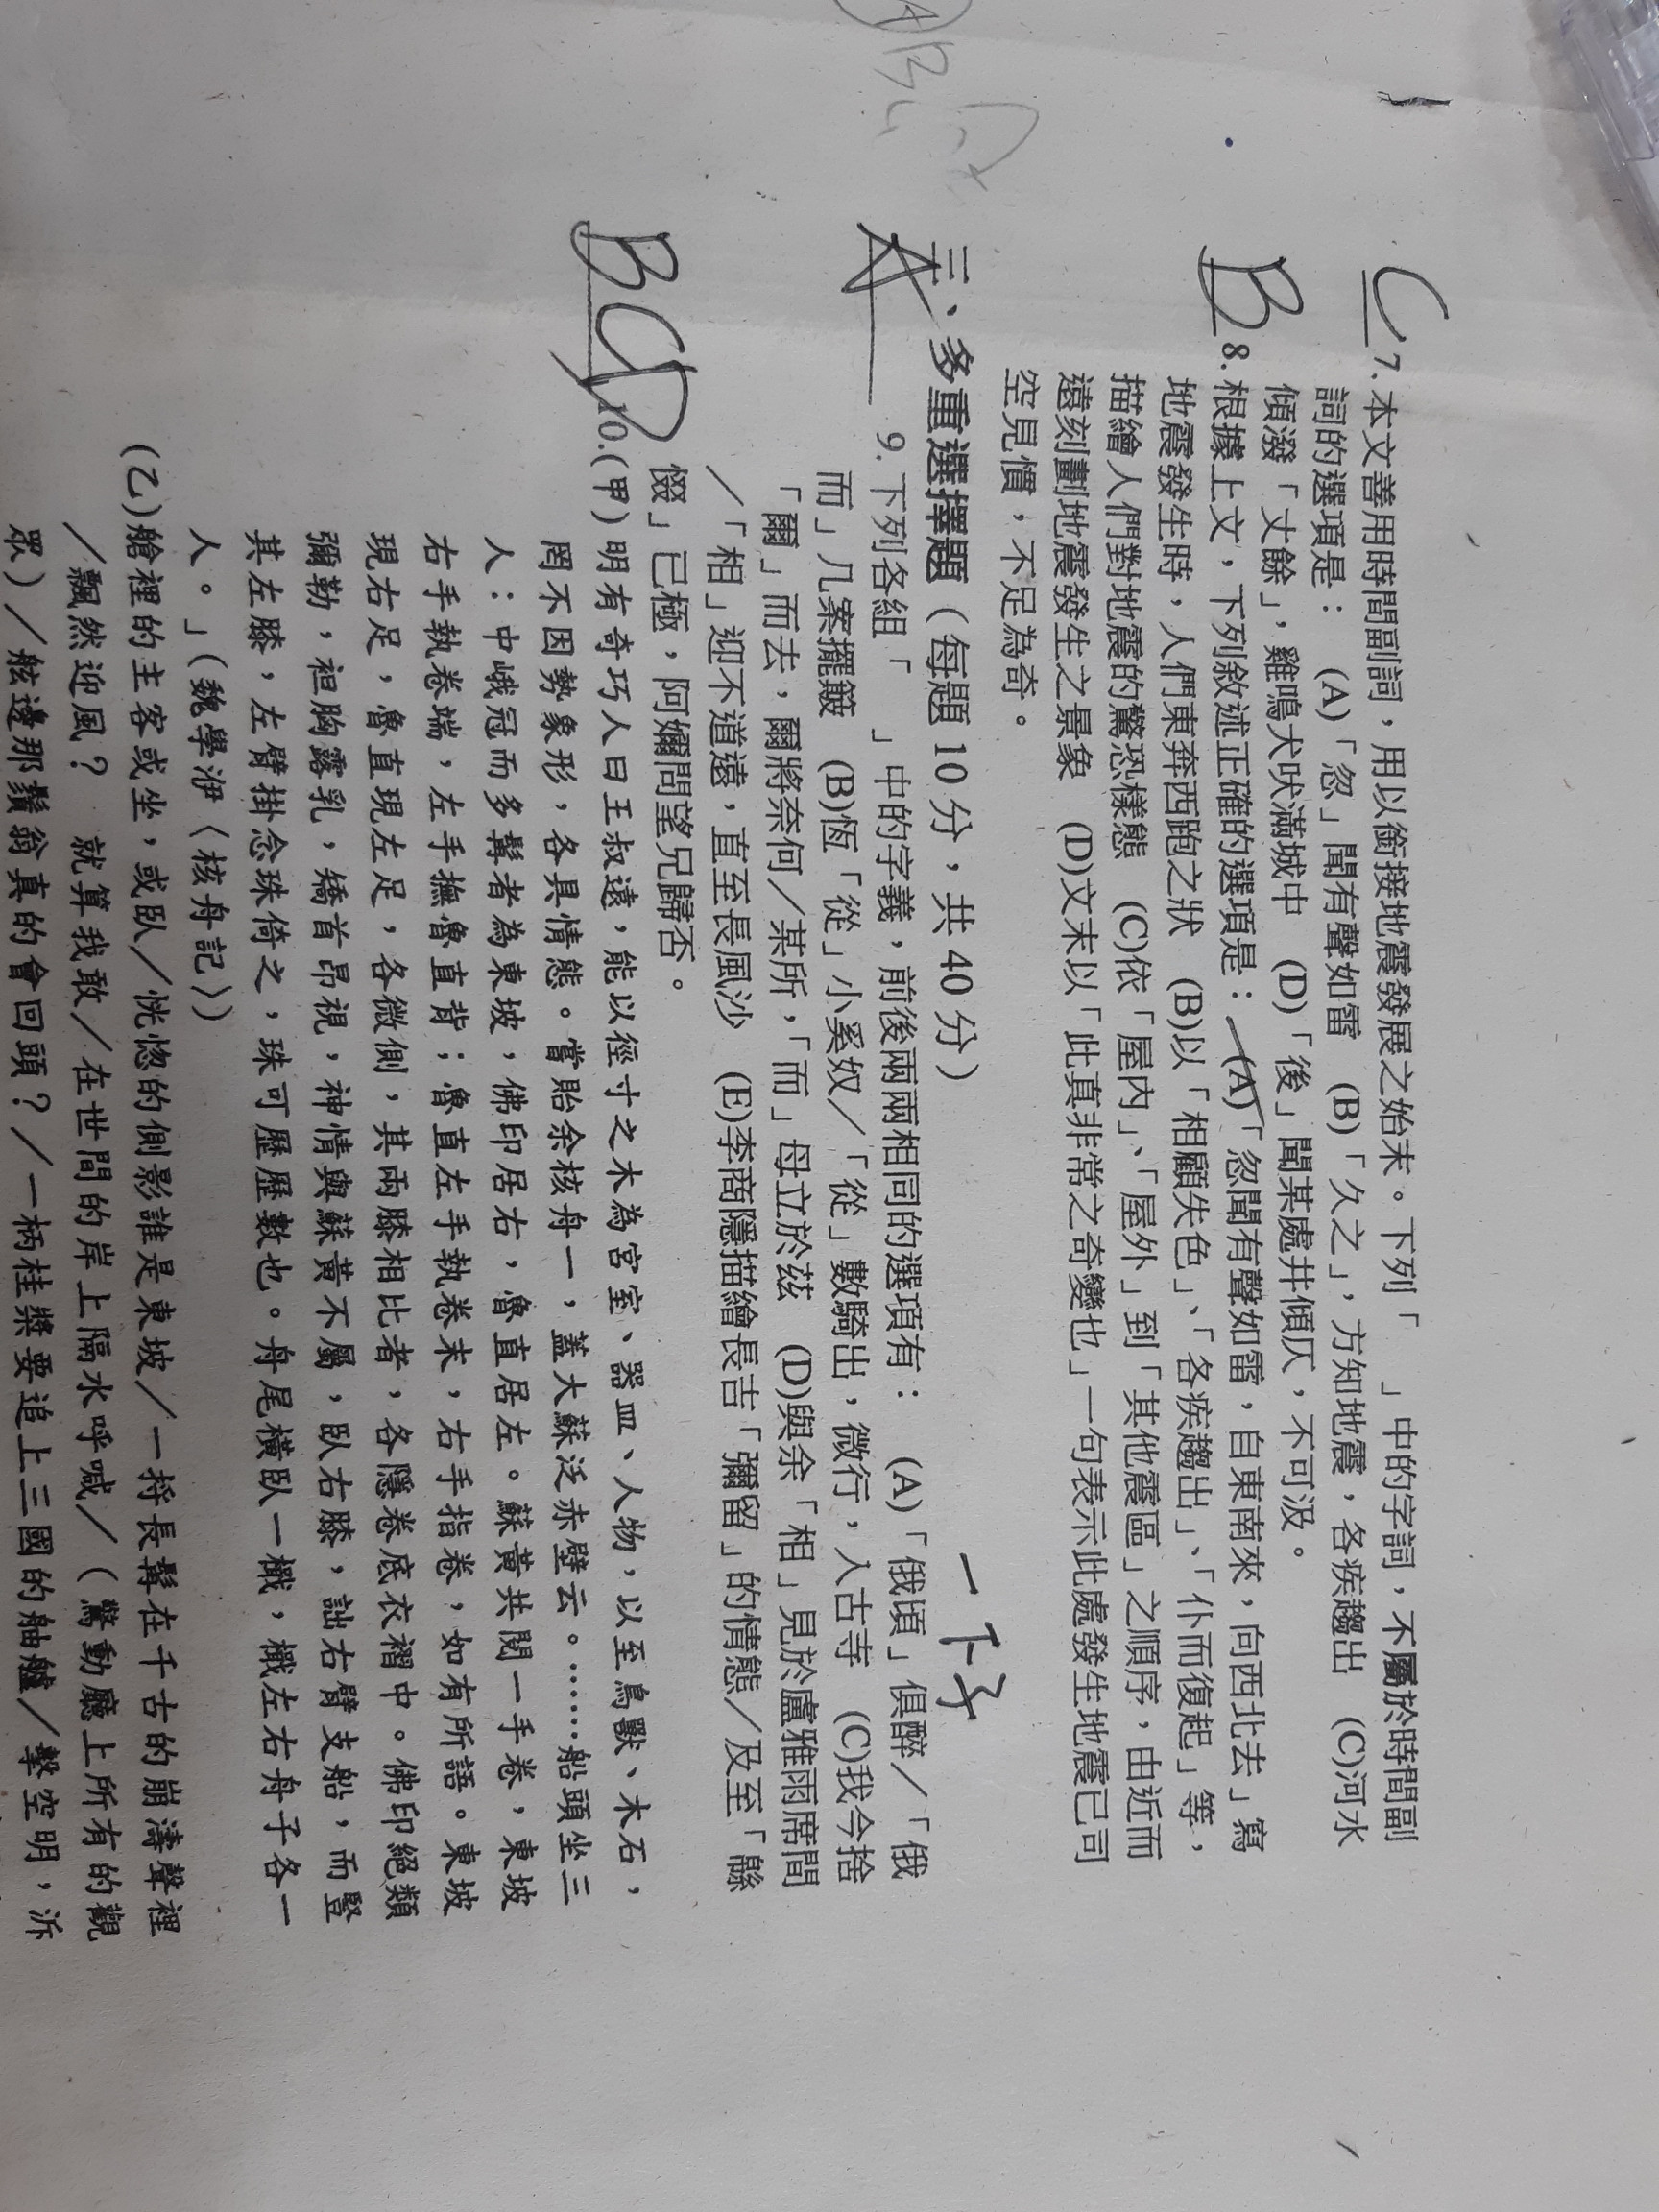 C 7.本文善用時間副詞，用以銜接地震發展之始末。下列「　」中的字詞，不屬於時間副
詞的選項是： (A)「忽」聞有聲如雷 (B)「久之」，方知地震，各疾趨出 (C)河水
傾潑「丈餘」，雞鳴犬吠滿城中 (D)「後」聞某處井傾仄，不可汲。
B 8.根據上文，下列敘述正確的選項是： (A)「忽聞有聲如雷，自東南來，向西北去」寫
地震發生時，人們東奔西跑之狀 (B)以「相顧失色」、「各疾趨出」、「仆而復起」等，
描繪人們對地震的驚恐樣態 (C)依「屋內」、「屋外」到「其他震區」之順序，由近而
遠刻劃地震發生之景象 (D)文末以「此真非常之奇變也」一句表示此處發生地震已司
空見慣，不足為奇。
三、多重選擇題（每題 10 分，共 40 分）
一下子
A 9.下列各組「　」中的字義，前後兩兩相同的選項有： (A)「俄頃」俱醉／「俄
而」几案擺簸 (B)恆「從」小奚奴／「從」數騎出，微行，入古寺 (C)我今捨
「爾」而去，爾將奈何／某所，「而」母立於茲 (D)與余「相」見於盧雅雨席間
／「相」迎不道遠，直至長風沙 (E)李商隱描繪長吉「彌留」的情態／及至「緜
惙」已極，阿㜷問望兄歸否。
BCD 10.(甲)明有奇巧人曰王叔遠，能以徑寸之木為宮室、器皿、人物，以至鳥獸、木石，
罔不因勢象形，各具情態。嘗貽余核舟一，蓋大蘇泛赤壁云。……船頭坐三
人：中峨冠而多髯者為東坡，佛印居右，魯直居左。蘇黃共閱一手卷，東坡
右手執卷端，左手撫魯直背；魯直左手執卷末，右手指卷，如有所語。東坡
現右足，魯直現左足，各微側，其兩膝相比者，各隱卷底衣褶中。佛印絕類
彌勒，袒胸露乳，矯首昂視，神情與蘇黃不屬，臥右膝，詘右臂支船，而豎
其左膝，左臂掛念珠倚之，珠可歷歷數也。舟尾橫臥一檝，檝左右舟子各一
人。」(魏學洢〈核舟記〉)
(乙)艙裡的主客或坐，或臥／恍惚的側影誰是東坡／一捋長髯在千古的崩濤聲裡
／飄然迎風？ 就算我敢／在世間的岸上隔水呼喊／（驚動廳上所有的觀
眾）／舷邊那鬚翁真的會回頭？／一柄桂槳要追上三國的舳艫／擊空明，泝